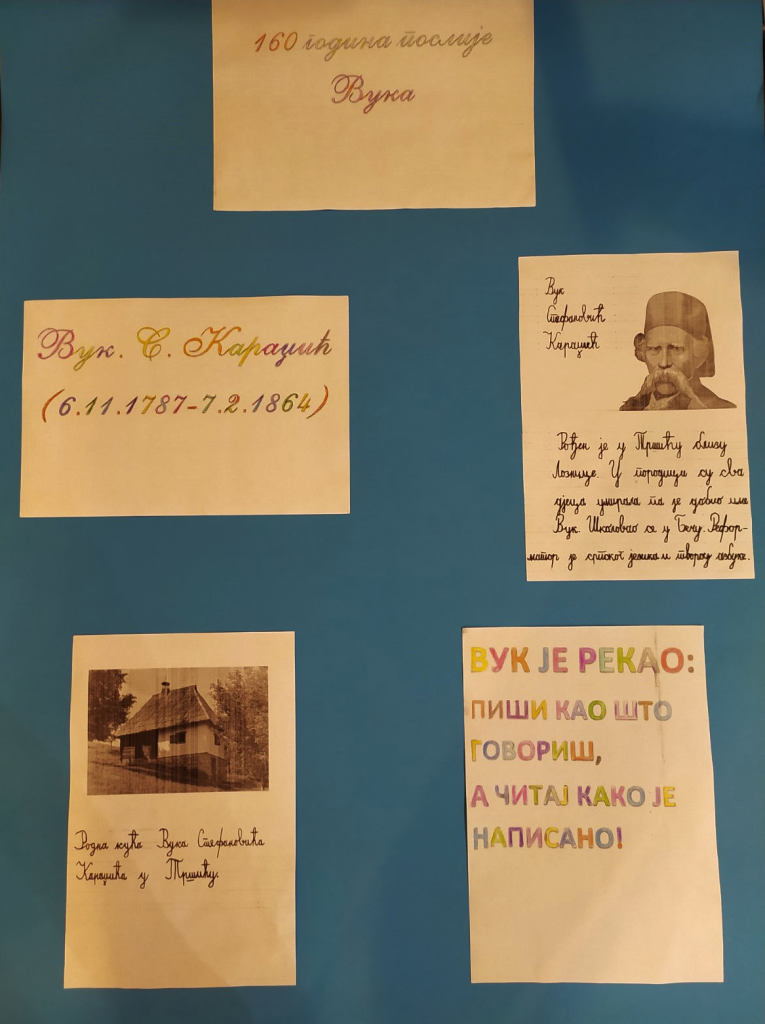 160 година послије
Вука
Вук. С. Караџић
(6.11.1787-7.2.1864)
Вук
Стефановић
Караџић
Рођен је у Тршићу близу
Лознице. У породици су сва
дјеца умирала па је добио име
Вук. Школовао се у Бечу. Рефор-
матор је српског језика и творац азбуке.
Родна кућа Вука Стефановића
Караџића у Тршићу.
ВУК ЈЕ РЕКАО:
ПИШИ КАО ШТО
ГОВОРИШ,
А ЧИТАЈ КАКО ЈЕ
НАПИСАНО!